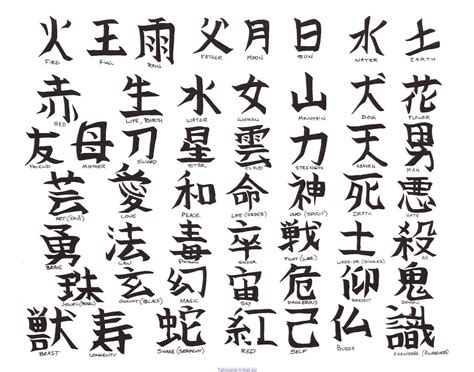 火 王 雨 父 月 日 水 土
FIRE KING RAIN FATHER MOON SUN WATER EARTH
赤 生 水 女 山 犬 花
RED LIFE, BIRTH WATER WOMAN MOUNTAIN DOG FLOWER
友 母 刀 星 雲 力 天 男
FRIEND MOTHER SWORD STAR CLOUD STRENGTH HEAVEN MAN
芸 愛 和 命 神 死 悪
ART (SKILL) LOVE PEACE LIFE (ORDER) GOD (SPIRIT) DEATH HATE
勇 法 毒 卒 戦 士 殺
BRAVE LAW POISON SOLDIER FIGHT (WAR) WARRIOR KILL
珠 玄 幻 宙 危 仰 鬼
JEWEL (PEARL) OCCULT (BLACK) MAGIC SKY DANGEROUS RESPECT DEMON
獣 寿 蛇 紅 己 仏 識
BEAST LONGEVITY SNAKE (SERPENT) RED SELF BUDDA KNOWLEDGE
Tatouage-tribal.eu